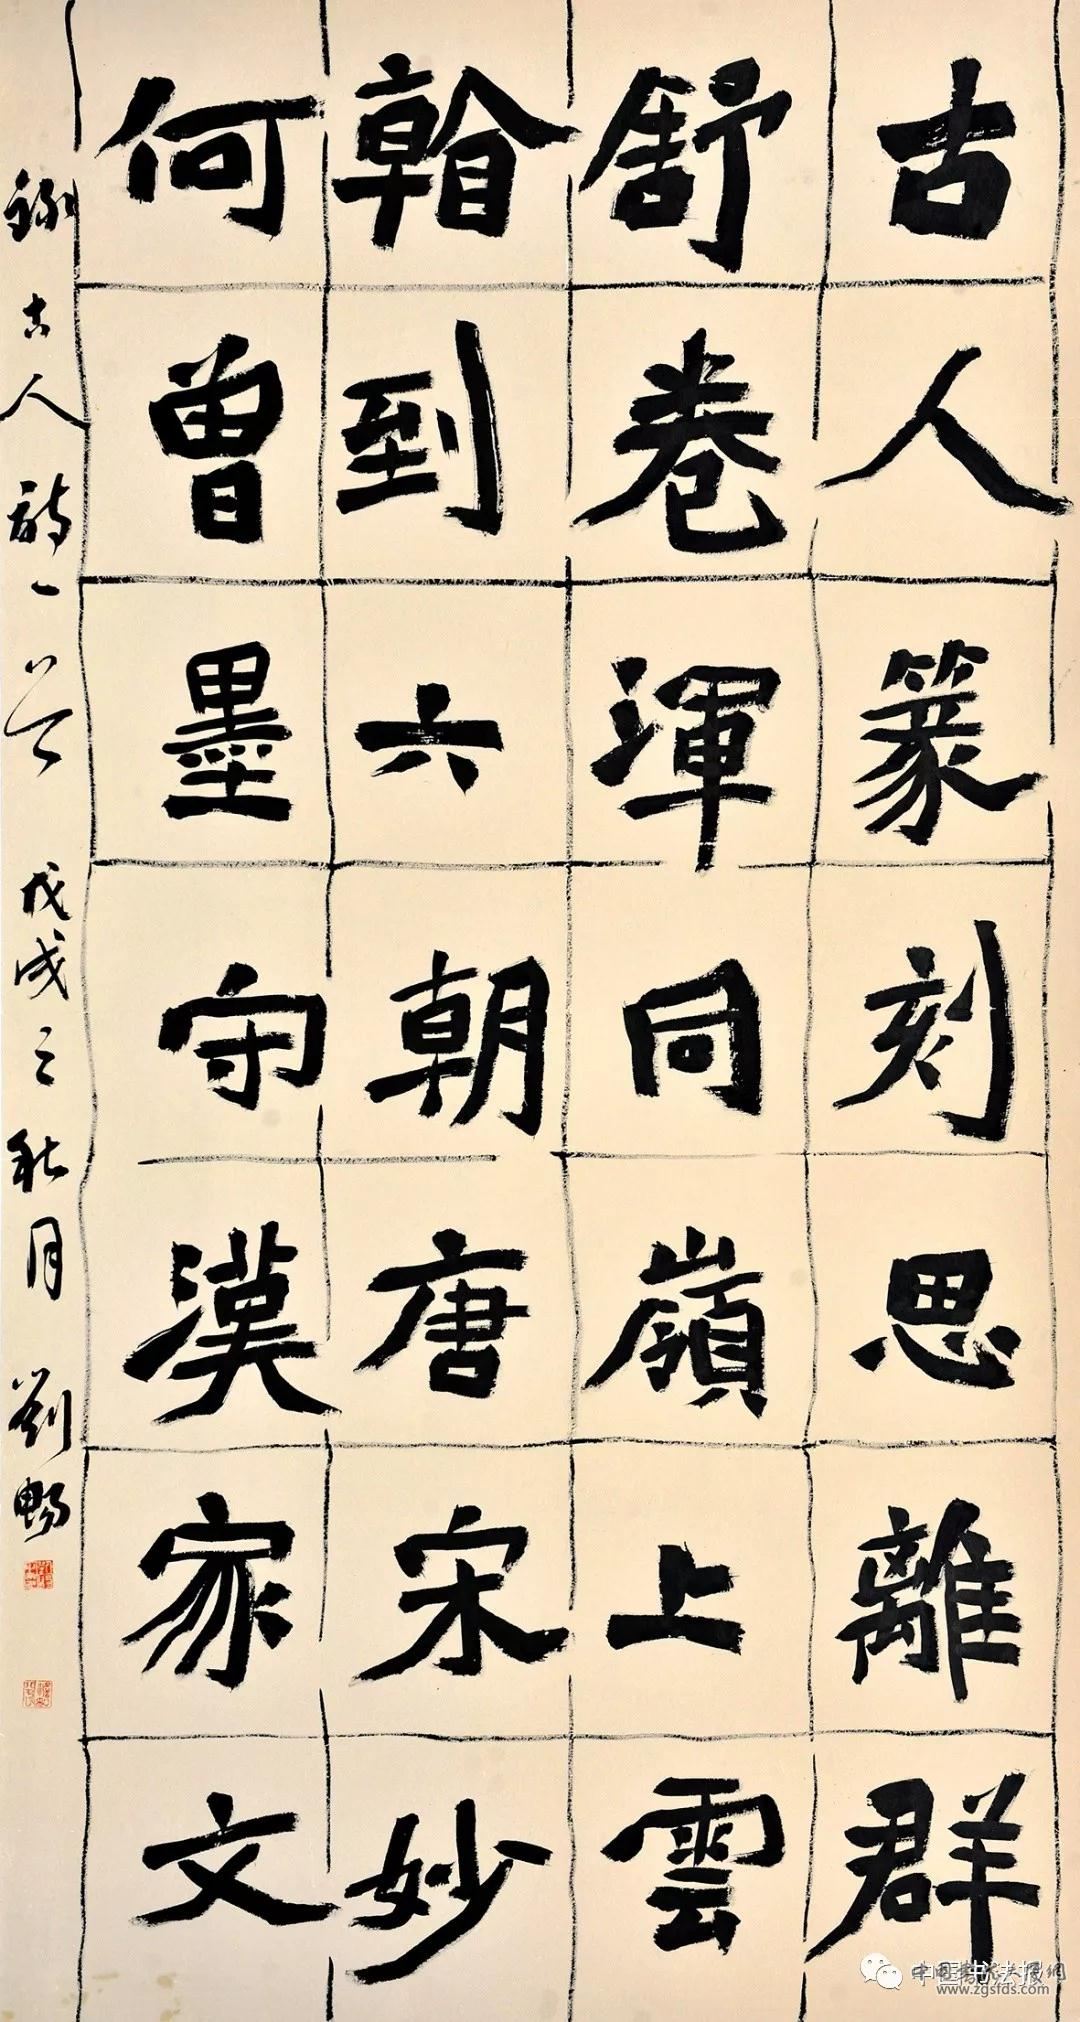 古人篆刻思離群
舒卷渾同嶺上雲
翰到六朝唐宋妙
何曾墨守漢家文
錄古人詩一首 戊戌之秋月 劉暢
中国书法报
www.zgsfds.com